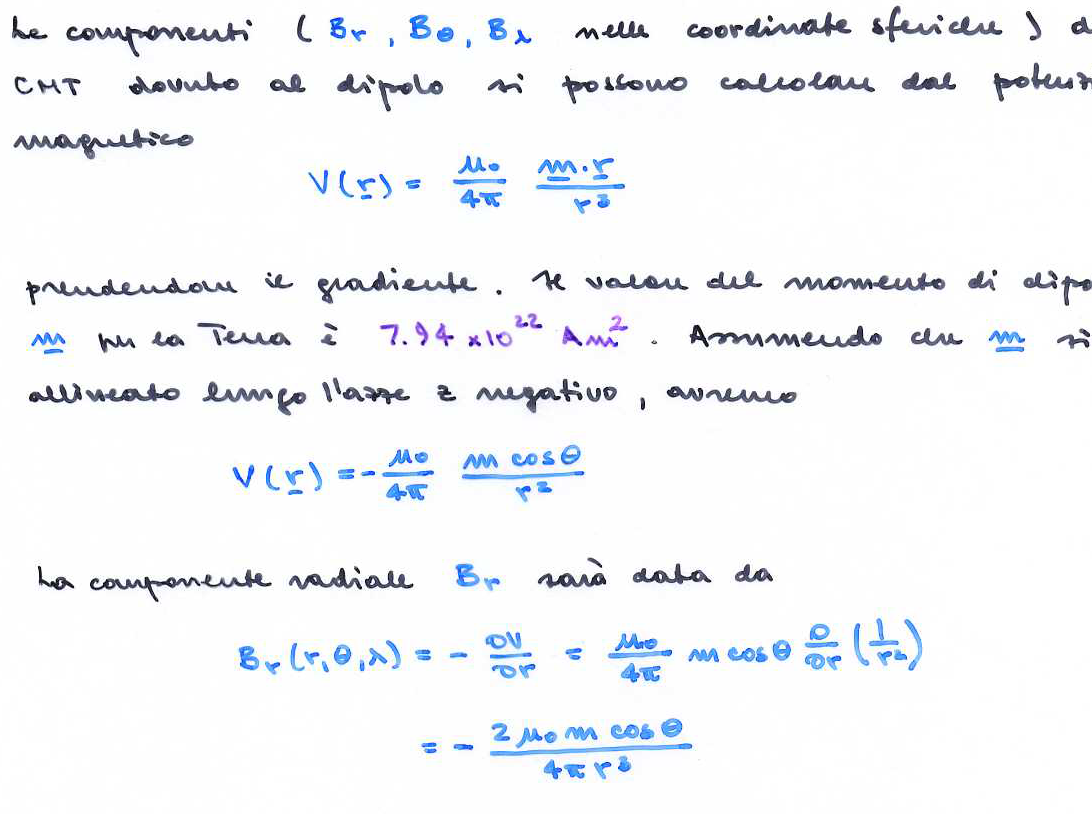 Le componenti ( Br , Bθ , Bλ nelle coordinate sferiche ) d
CMT dovuto al dipolo si possono calcolare dal potenzi
magnetico
V(r) = μ0/4π m·r/r³
prendendone il gradiente. Il valore del momento di dipo
m per la Terra è 7.94 ×10²² Am². Assumendo che m si
allineato lungo l'asse z negativo, avremo
V(r) = - μ0/4π m cosθ/r²
La componente radiale Br sarà data da
Br (r, θ, λ) = - ∂V/∂r = μ0/4π m cosθ ∂/∂r (1/r²)
= - 2 μ0 m cosθ/4π r³